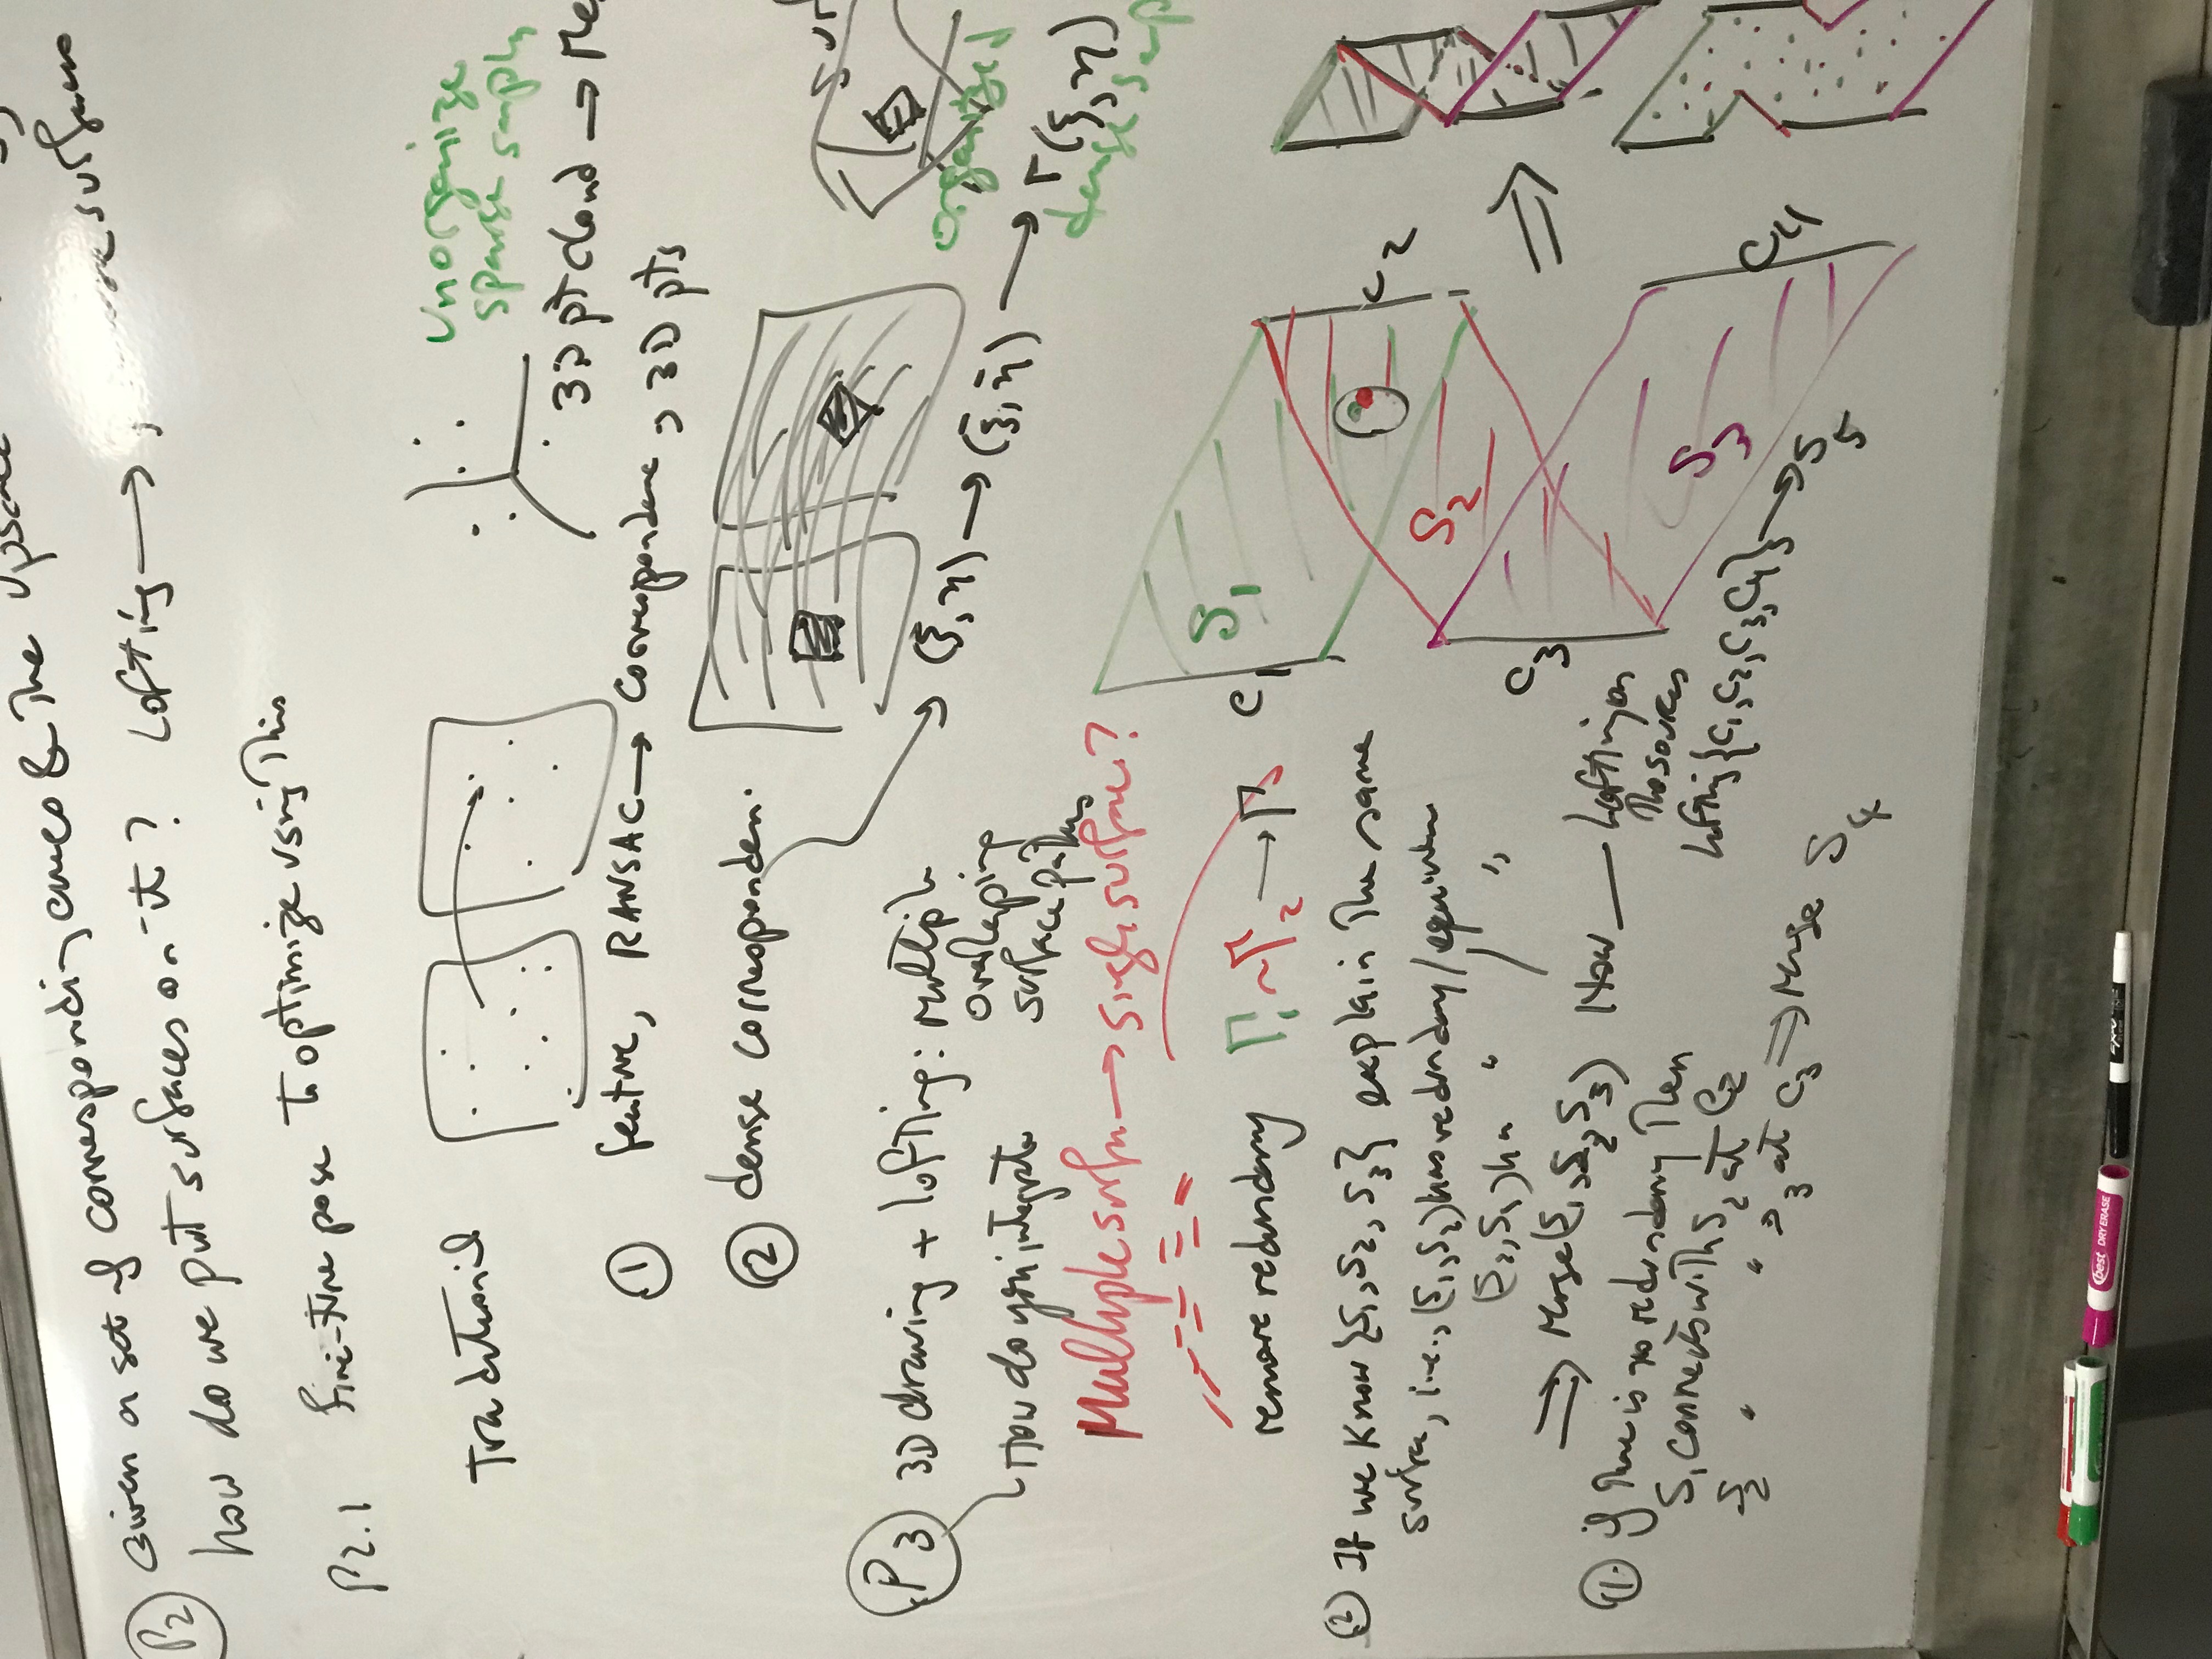 P2 Given a set of corresponding curves & the
how do we put surfaces on it? Lofting → surfaces
P2.1 fine-tune pose to optimize using this
Traditional
Unorganize
sparse
3D pt cloud →
① feature, RANSAC → Correspondence → 3D pts
② dense corresponden.
(ξ, η) → (ξ̄, η̄) → Γ(ξ, η)
organized
dense
P3 3D drawing + lofting: multiple
overlapping
surface
How do you integrate
Multiple surfa → single surface?
remove redundancy Γ1 ~ Γ2 → Γ3
② If we know {S1, S2, S3} explain the same
surface, i.e., (S1, S2) has redundancy /
(S2, S1) ha " / "
⇒ Merge (S1, S2, S3) How — Lofting on
the sources
Lofting {C1, C2, C3, C4} → S5
① if there is no redundancy then
S1 connects with S2 at C2
S2 " " S3 at C3 ⇒ Merge S4
C1
S1
C2
S2
C3
S3
C4
best DRY ERASE
EXPO